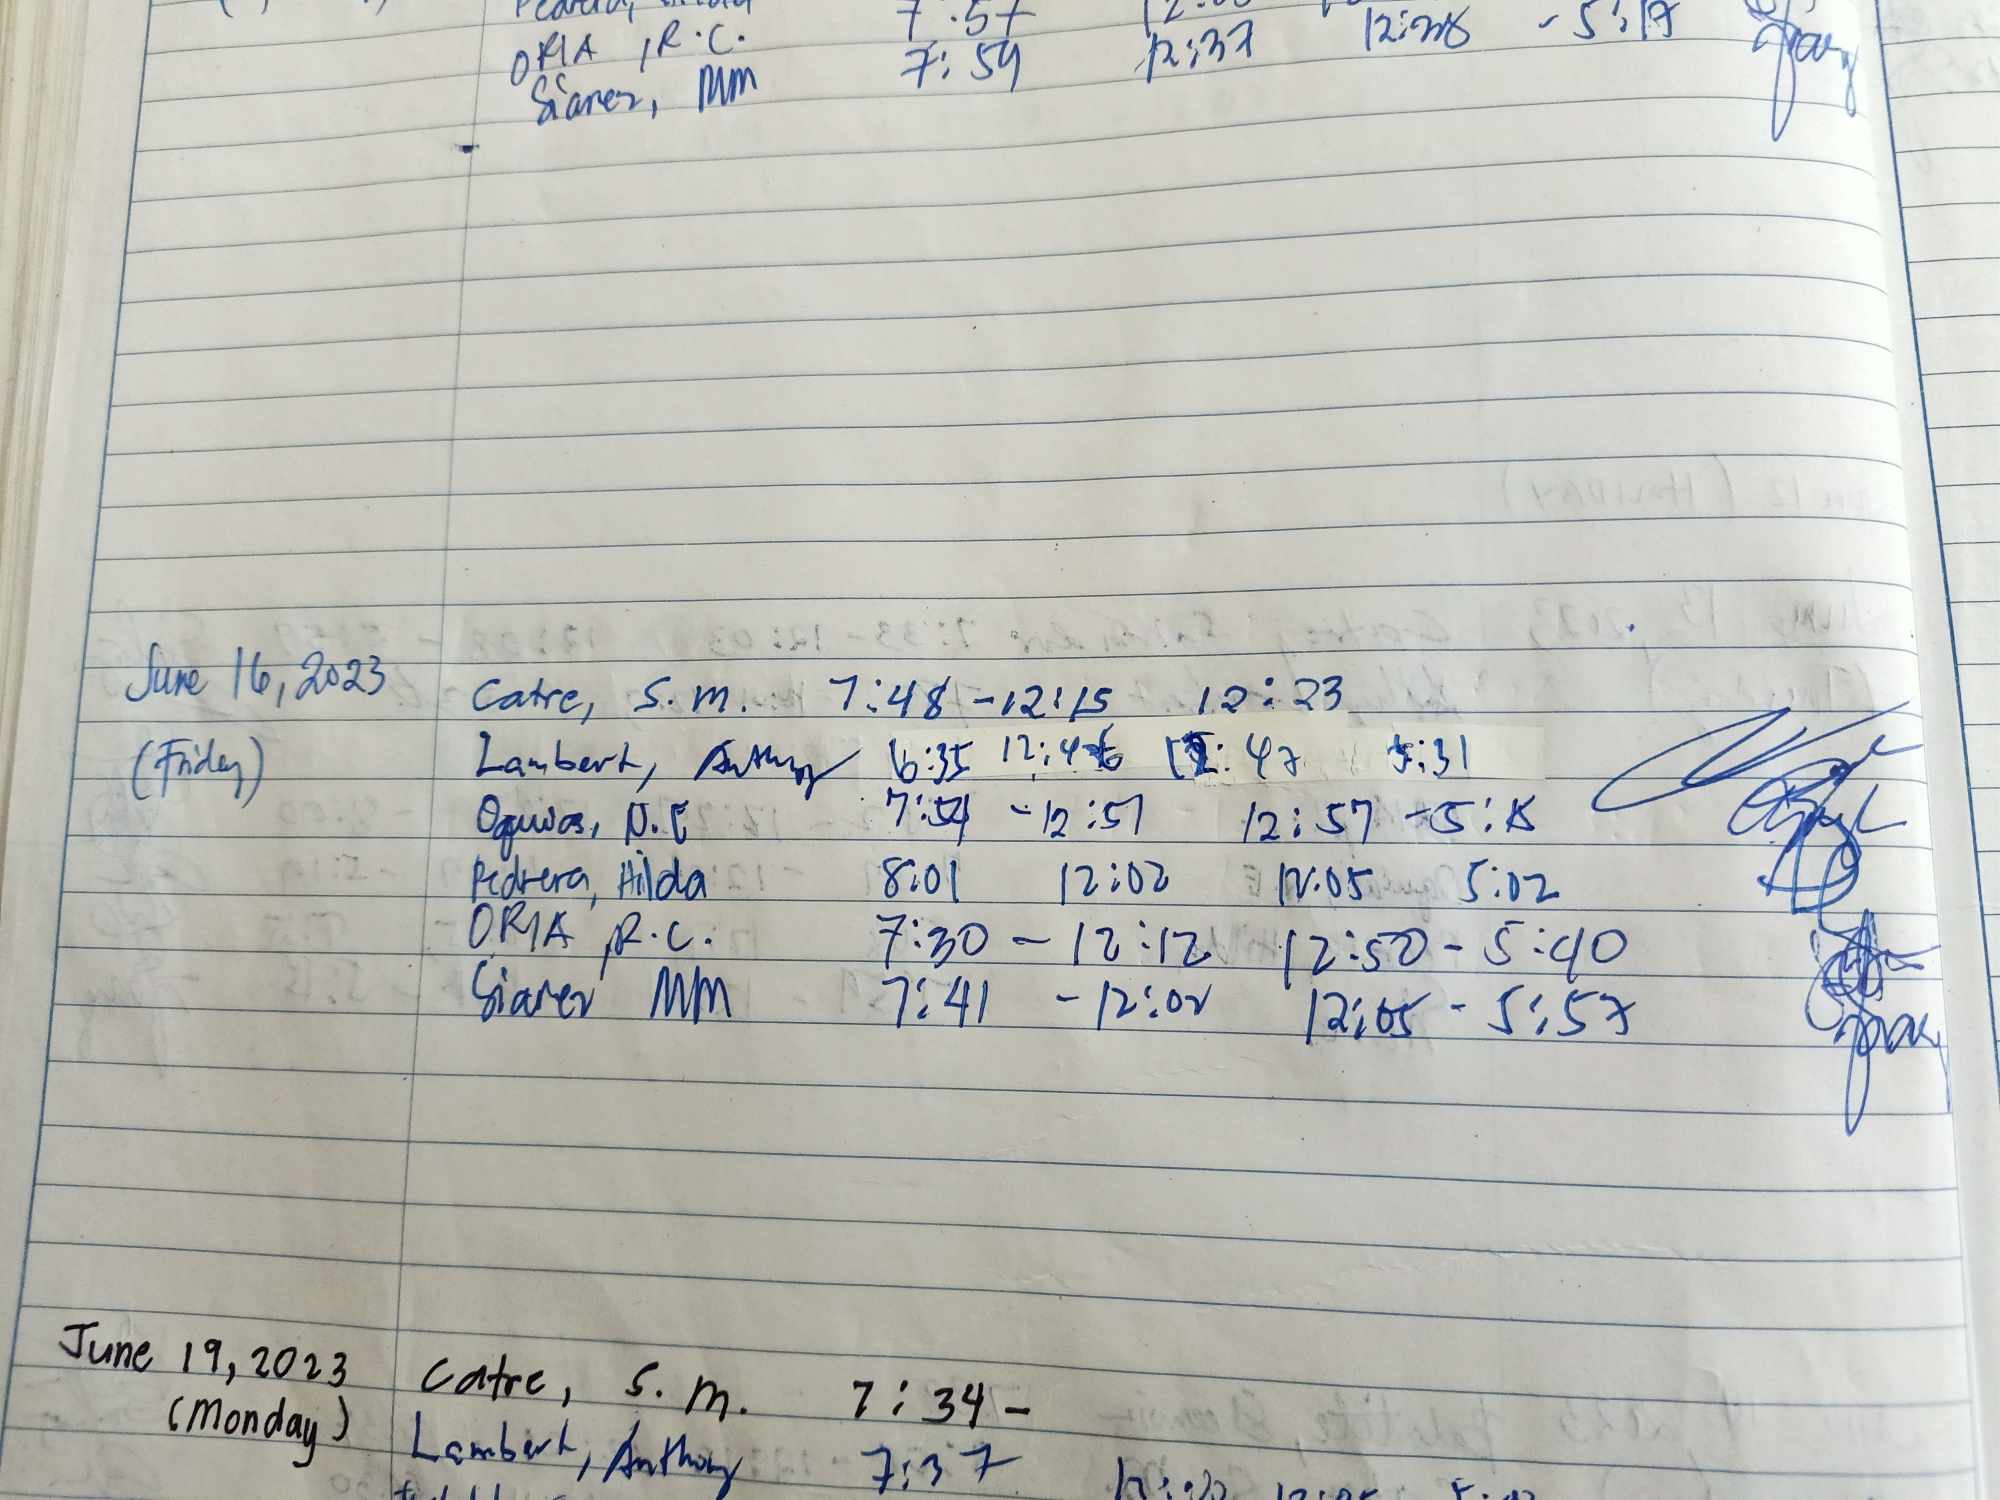 7:57
ORIA, R.C. 7:59 12:37 12:38 - 5:17
Siarez, MM
June 16, 2023 Catre, S.M. 7:48 - 12:15 12:23
(Friday) Lambert, Anthony 6:35 12:46 12:47 5:31
N.E 12:57 - 5:15
Pedrera, Hilda 8:01 12:02 12:05 5:02
ORIA, R.C. 7:30 - 12:12 12:50 - 5:40
Siarez MM 7:41 - 12:02 12:05 - 5:57
June 19, 2023 Catre, S.M. 7:34 -
(Monday) Lambert, Anthony 7:37